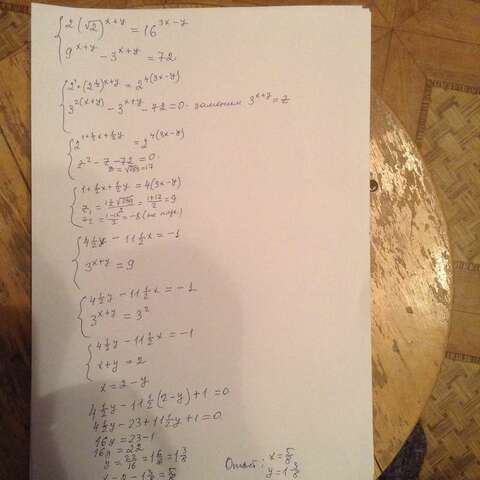 2(√2)^{x+y} = 16^{3x-y}
9^{x+y} - 3^{x+y} = 72
2¹·(2^{½})^{x+y} = 2^{4(3x-y)}
3^{2(x+y)} - 3^{x+y} - 72 = 0 - замена 3^{x+y} = z
2^{1+½x+½y} = 2^{4(3x-y)}
z² - z - 72 = 0
= √289 = 17
1+½x+½y = 4(3x-y)
z₁ = (1+√289)/2 = (1+17)/2 = 9
z₂ = (1-17)/2 = -8 (не подх.)
4½y - 11½x = -1
3^{x+y} = 9
4½y - 11½x = -1
3^{x+y} = 3²
4½y - 11½x = -1
x+y = 2
x = 2-y
4½y - 11½(2-y) + 1 = 0
4½y - 23 + 11½y + 1 = 0
16y = 23-1
16y = 22
y = 22/16 = 1 6/16 = 1 3/8
x = 2 - 1 3/8 = 5/8
Ответ: x = 5/8
y = 1 3/8